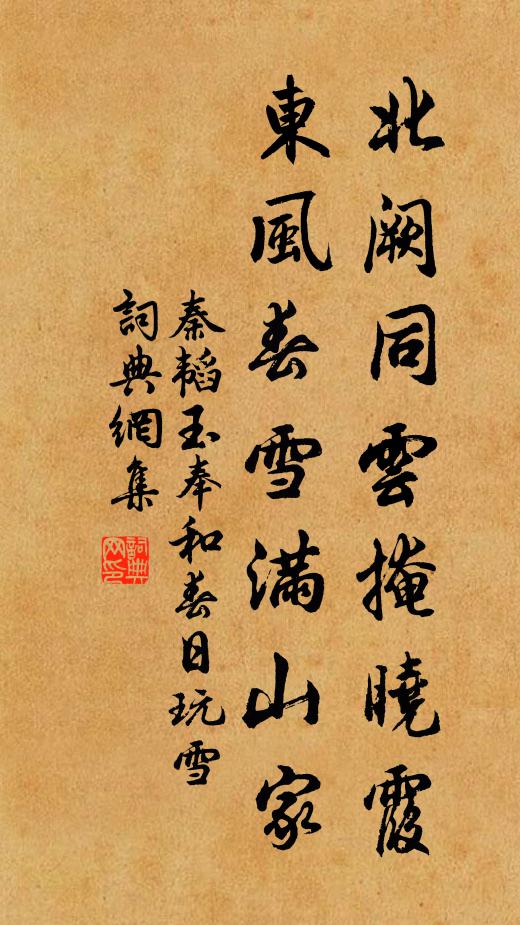 北阙同雲掩曉霞
東風春雪满山家
秦韬玉奉和春日玩雪
詞典網集
詞典网印